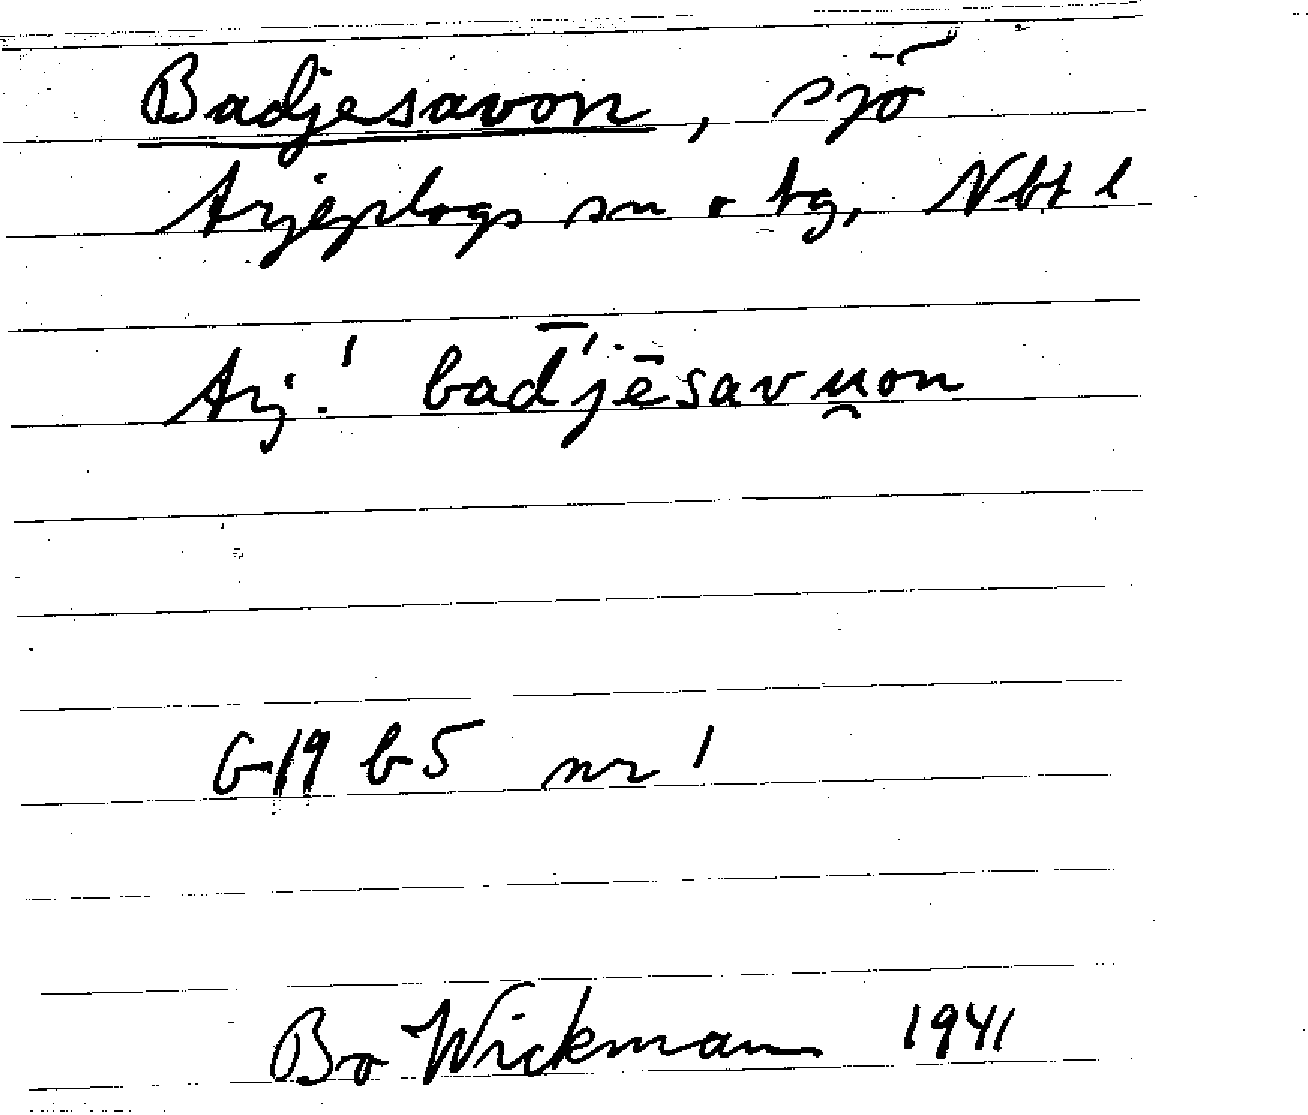 Badjesavon, sjö
Arjeplogs sn o tg, Nbt l
Arj.! bad̄'jēsavu̯on
G 19 b 5 nr 1
Bo Wickman 1941